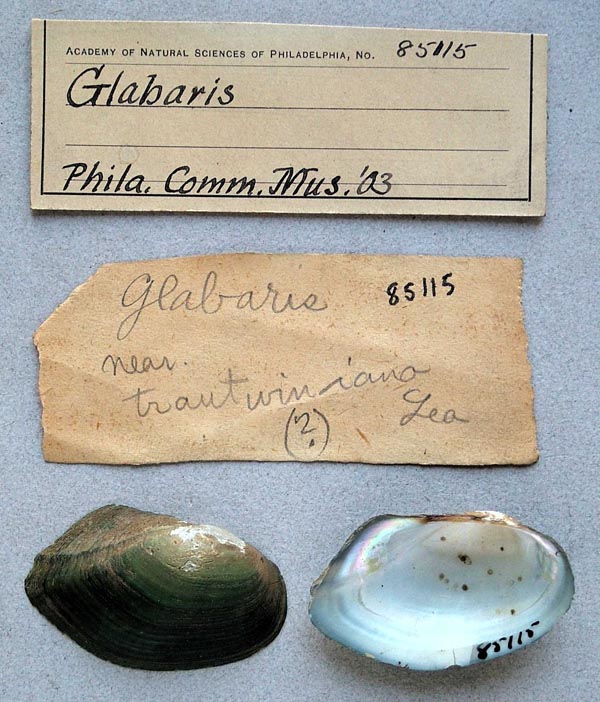 ACADEMY OF NATURAL SCIENCES OF PHILADELPHIA, NO. 85115
Glabaris
Phila. Comm. Mus. '03
Glabaris 85115
near.
trautwiniana
Lea
(?)
85115